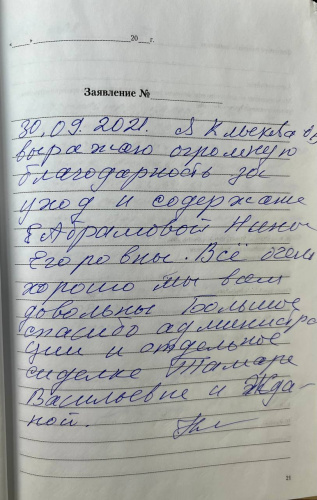 «___»____________20___г.
Заявление №____________
30.09.2021. Я Клыкова
выражаю огромную
благодарность за
уход и содержание
Абрамовой Нины
Егоровны. Всё очень
хорошо мы всем
довольны Большое
спасибо администра
ции и отдельное
сиделке Тамаре
Васильевне и Жда-
ной.
21